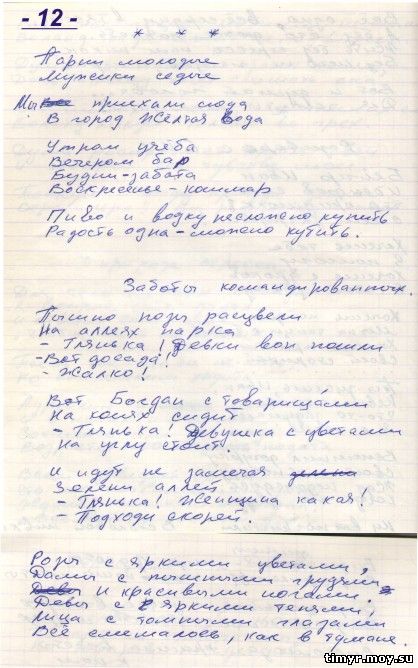 - 12 -
* * *
Парни молодые
Мужики седые
Мы приехали сюда
В город Жёлтая Вода
Утром учёба
Вечером бар
Будни-забота
Воскресенье-кошмар
Пиво и водку несложно купить
Радость одна - можно кутить.
Заботы командированных.
Пышно розы расцвели
На аллеях парка
- Глянька! Девки вон пошли
- Вот досада!
- Жалко!
Вот Богдан с товарищами
На конях сидит
- Глянька! Девушка с цветами
На углу стоит.
И идут не замечая
Зелени аллей
- Глянька! Женщина какая!
- Подходи скорей.
Розы с яркими цветами,
Дамы с пышными грудями
и красивыми ногами.
Девы с яркими тенями,
Лица с томными глазами
Всё смешалось, как в тумане.
timyr.moy.su